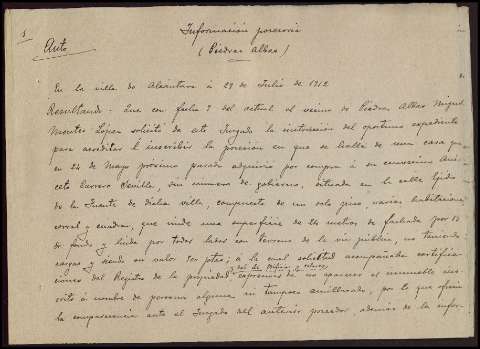 1
Información posesoria
Auto
(Piedras Albas)
En la villa de Alcántara á 29 de Julio de 1912
Resultando: Que con fecha 9 del actual el vecino de Piedras Albas Miguel
Montes López solicitó de este Juzgado la instrucción del oportuno expediente
para acreditar é inscribir la posesión en que se halla de una casa que
en 24 de Mayo próximo pasado adquirió por compra á su convecino Ani-
ceto Carrero Sevilla, sin número de gobierno, situada en la calle Egido
de la Fuente de dicha villa, compuesta de un solo piso, varias habitaciones
corral y cuadra, que mide una superficie de 24 metros de fachada por 13
de fondo y linda por todos lados con terrenos de la vía pública, no teniendo
cargas y siendo su valor ptas; á la cual solicitud acompañaba certifica-
ciones del Registro de la propiedad expresivas de no aparecer el inmueble ins-
crito á nombre de persona alguna ni tampoco amillarado, por lo que ofrecía
la comparecencia ante el Juzgado del anterior poseedor, además de la infor-